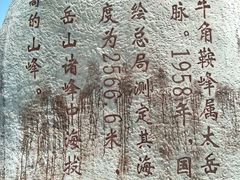 牛角鞍峰属太岳
脉。1958年，国
绘总局测定其海
度为2566.6米，
岳山诸峰中海拔
高的山峰。